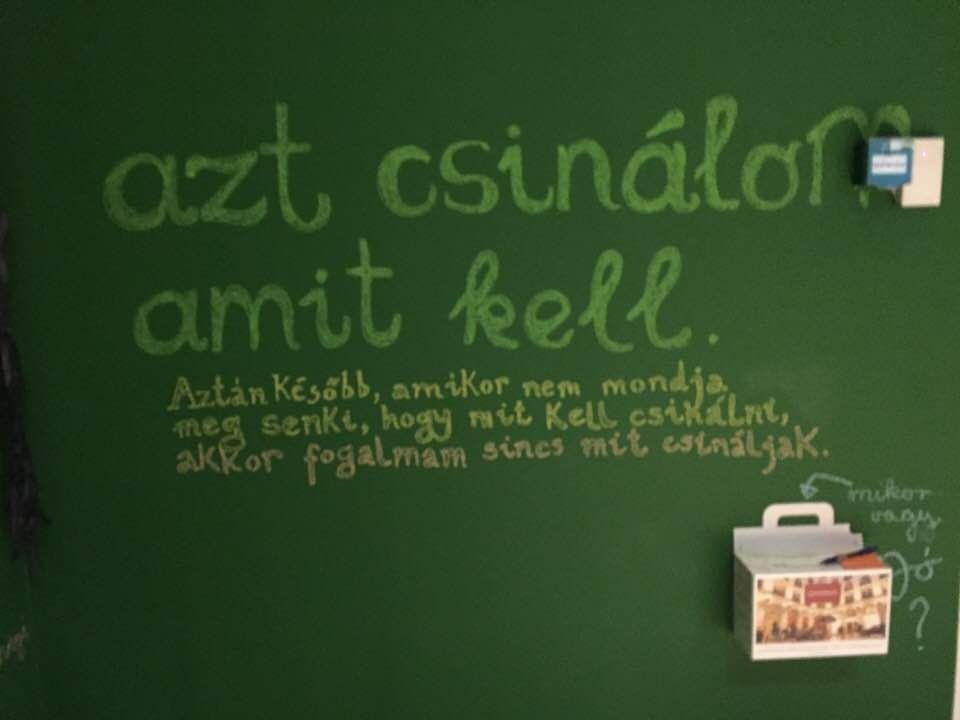 azt csinálom
amit kell.
Aztán később, amikor nem mondja
meg senki, hogy mit kell csinálni,
akkor fogalmam sincs mit csináljak.
mikor
vagy
Jó
?